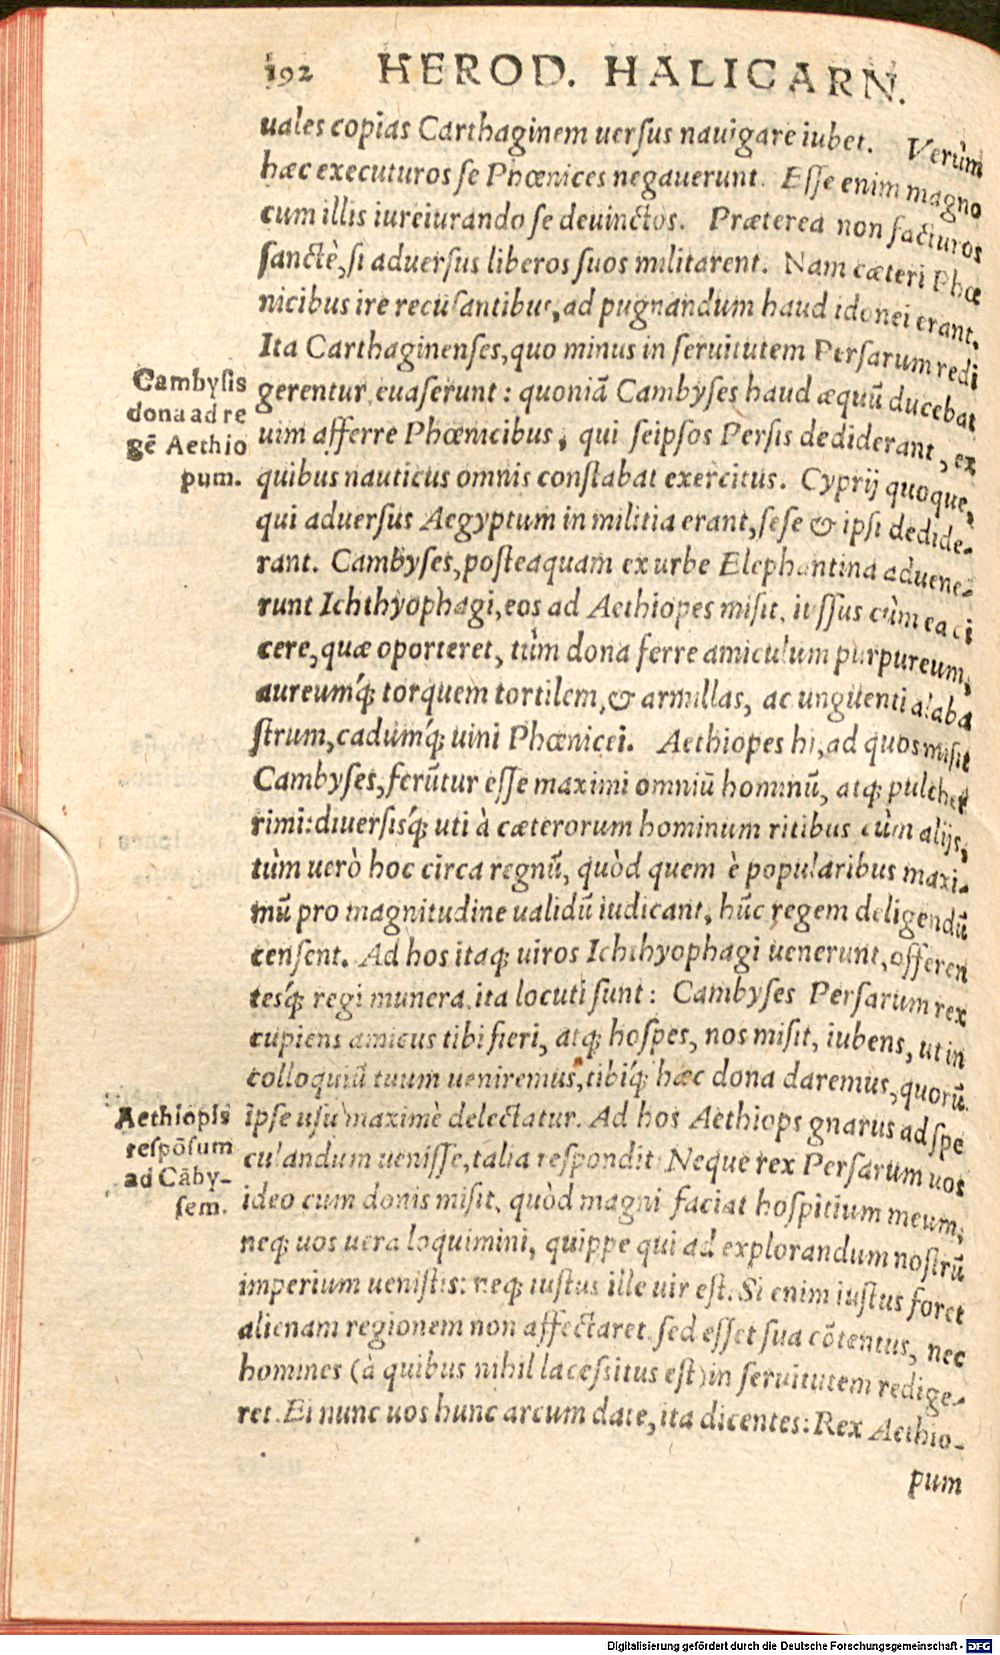 192 HEROD. HALICARN.
uales copias Carthaginem uerſus nauigare iubet. Verùm
hæc executuros ſe Phœnices negauerunt. Eſſe enim magno
cum illis iureiurando ſe deuinctos. Præterea non facturos
ſanctè, ſi aduerſus liberos ſuos militarent. Nam cæteri Phœ
nicibus ire recuſantibus, ad pugnandum haud idonei erant.
Ita Carthaginenſes, quo minus in ſeruitutem Perſarum redi
gerentur, euaſerunt: quoniā Cambyſes haud æquū ducebat
uim afferre Phœnicibus, qui ſeipſos Perſis dediderant, ex
quibus nauticus omnis conſtabat exercitus. Cyprij quoque,
qui aduerſus Aegyptum in militia erant, ſeſe & ipſi dedide-
rant. Cambyſes, poſteaquam ex urbe Elephantina aduene-
runt Ichthyophagi, eos ad Aethiopes miſit, iuſſus cùm ea di
cere, quæ oporteret, tùm dona ferre amiculum purpureum,
aureumq́; torquem tortilem, & armillas, ac unguenti alaba
ſtrum, cadumq́; uini Phœnicei. Aethiopes hi, ad quos miſit
Cambyſes, ferūtur eſſe maximi omniū hominū, atq; pulcher
rimi: diuerſisq́; uti à cæterorum hominum ritibus cùm alijs,
tùm uerò hoc circa regnū, quòd quem è popularibus maxi-
mū pro magnitudine ualidū iudicant, hūc regem deligendū
cenſent. Ad hos itaq; uiros Ichthyophagi uenerunt, offeren
tesq́; regi munera, ita locuti ſunt: Cambyſes Perſarum rex
cupiens amicus tibi fieri, atq; hoſpes, nos miſit, iubens, ut in
colloquiū tuum ueniremus, tibiq́; hæc dona daremus, quorū
ipſe uſu maximè delectatur. Ad hos Aethiops gnarus ad ſpe
culandum ueniſſe, talia reſpondit: Neque rex Perſarum uos
ideo cum donis miſit, quòd magni faciat hoſpitium meum,
neq; uos uera loquimini, quippe qui ad explorandum noſtrū
imperium ueniſtis: neq; iuſtus ille uir eſt. Si enim iuſtus foret
alienam regionem non affectaret, ſed eſſet ſua cōtentus, nec
homines (à quibus nihil laceſsitus eſt) in ſeruitutem redige-
ret. Ei nunc uos hunc arcum date, ita dicentes: Rex Aethio-
pum
Cambyſis
dona ad re
gē Aethio
pum.
Aethiopis
reſpōſum
ad Cāby-
ſem.
Digitalisierung gefördert durch die Deutsche Forschungsgemeinschaft - DFG